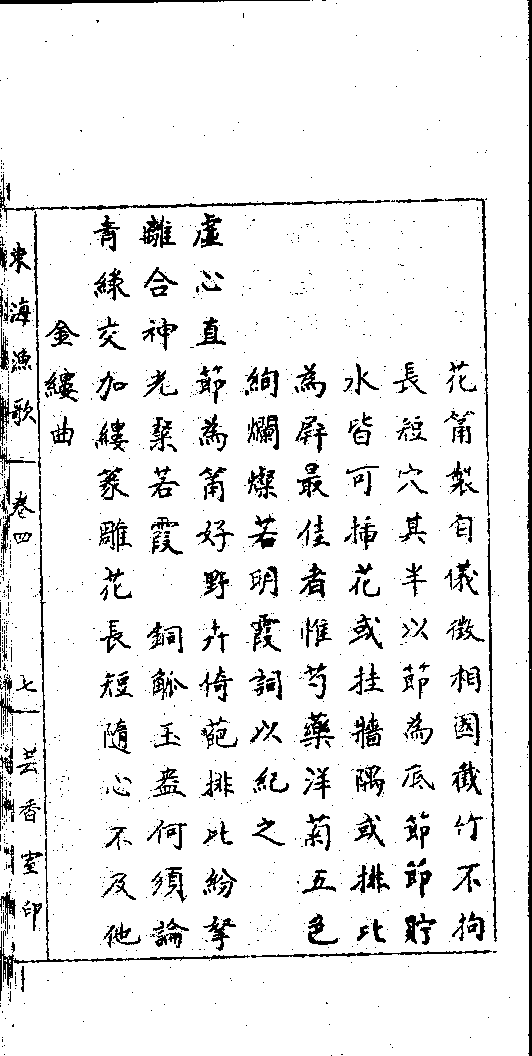 花筩製自儀徵相國截竹不拘
長短穴其半以節為底節節貯
水皆可插花或挂牆隅或排比
為屏最佳者惟芍藥洋菊五色
絢爛燦若明霞詞以紀之
虛心直節為筩好野卉倚葩排比紛拏
離合神光粲若霞　銅觚玉盎何須論
青綠交加縷篆雕花長短隨心不及他
金縷曲
東海漁歌　卷四　七　芸香室印